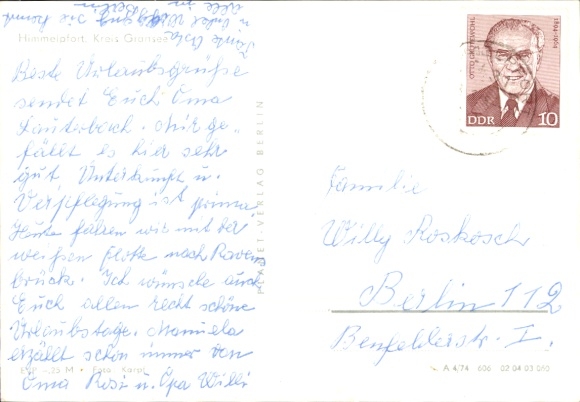 Himmelpfort, Kreis Gransee
Beste Urlaubsgrüße
sendet Euch Oma
Lauterbach. Mir ge-
fällt es hier sehr
gut, Unterkunft u.
Verpflegung ist prima.
Heute fahren wir mit der
weißen Flotte nach Ravens
brück. Ich wünsche auch
Euch allen recht schöne
Urlaubstage. Manuela
erzählt schon immer von
Oma Rosi u. Opa Willi
alle in Berlin
EVP -,25 M • Foto Karat
PLANET-VERLAG BERLIN
OTTO GROTEWOHL
1894-1964
DDR 10
Familie
Willy Roskosch
Berlin 112
Benfelderstr. I.
A 4/74 606 02 04 03 060